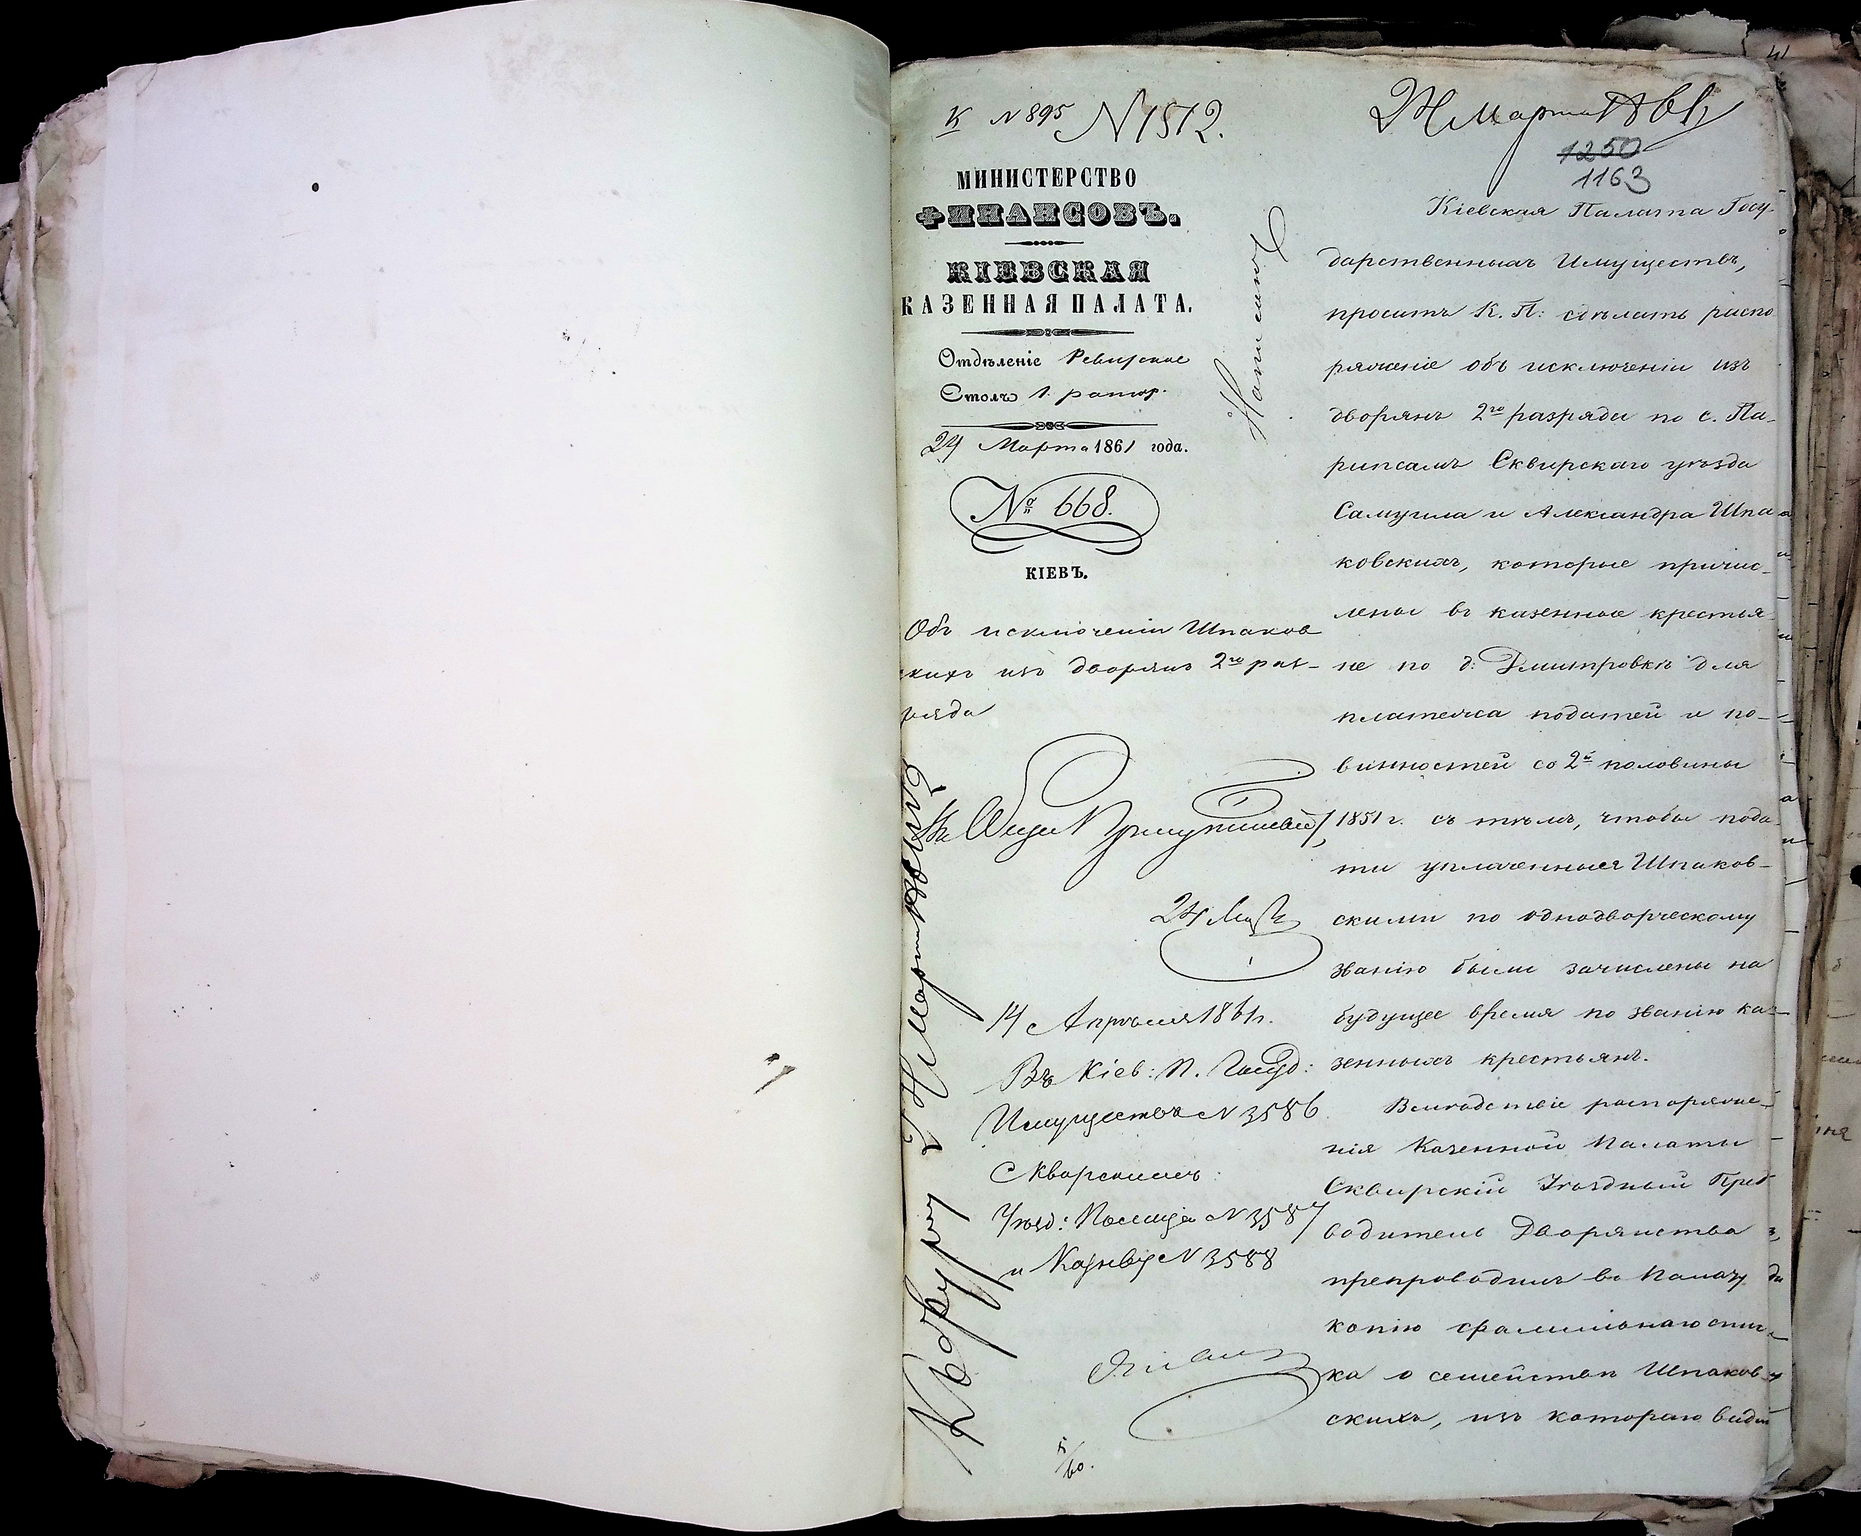 К N 895 N 1512.
24 Марта 1861
1250
1163
МИНИСТЕРСТВО
ФИНАНСОВЪ.
КІЕВСКАЯ
КАЗЕННАЯ ПАЛАТА.
Отдѣленіе Ревизское
Столъ 1.
24 Марта 1861 года.
№ 668.
КІЕВЪ.
Объ исключеніи Шпаков
скихъ изъ дворянъ 2го раз-
ряда
24
14 Апрѣля 1861г.
Въ Кіев: П. Госуд:
Имуществъ N 3586
Сквирскимъ
Уѣзд: Полиціи N 3587
и Казнач N 3588
Кіевская Палата Госу-
дарственныхъ Имуществъ,
проситъ К. П: сдѣлать распо
ряженіе объ исключеніи изъ
дворянъ 2го разряда по с. Па-
рипсамъ Сквирскаго уѣзда
Самуила и Александра Шпа
ковскихъ, которые причис-
лены въ казенные крестья
не по д: Дмитровкѣ для
платежа податей и по-
винностей со 2й половины
1851 г. съ тѣмъ, чтобы пода
ти уплаченныя Шпаков-
скими по однодворческому
званію были зачислены на
будущее время по званію ка-
зенныхъ крестьянъ.
Вслѣдствіе распоряже-
нія Казенной Палаты
Сквирскій Уѣздный Пред
водитель Дворянства
препроводилъ въ Палату
копію фамильнаго спис
ка о семействѣ Шпаков
скихъ, изъ котораго видн